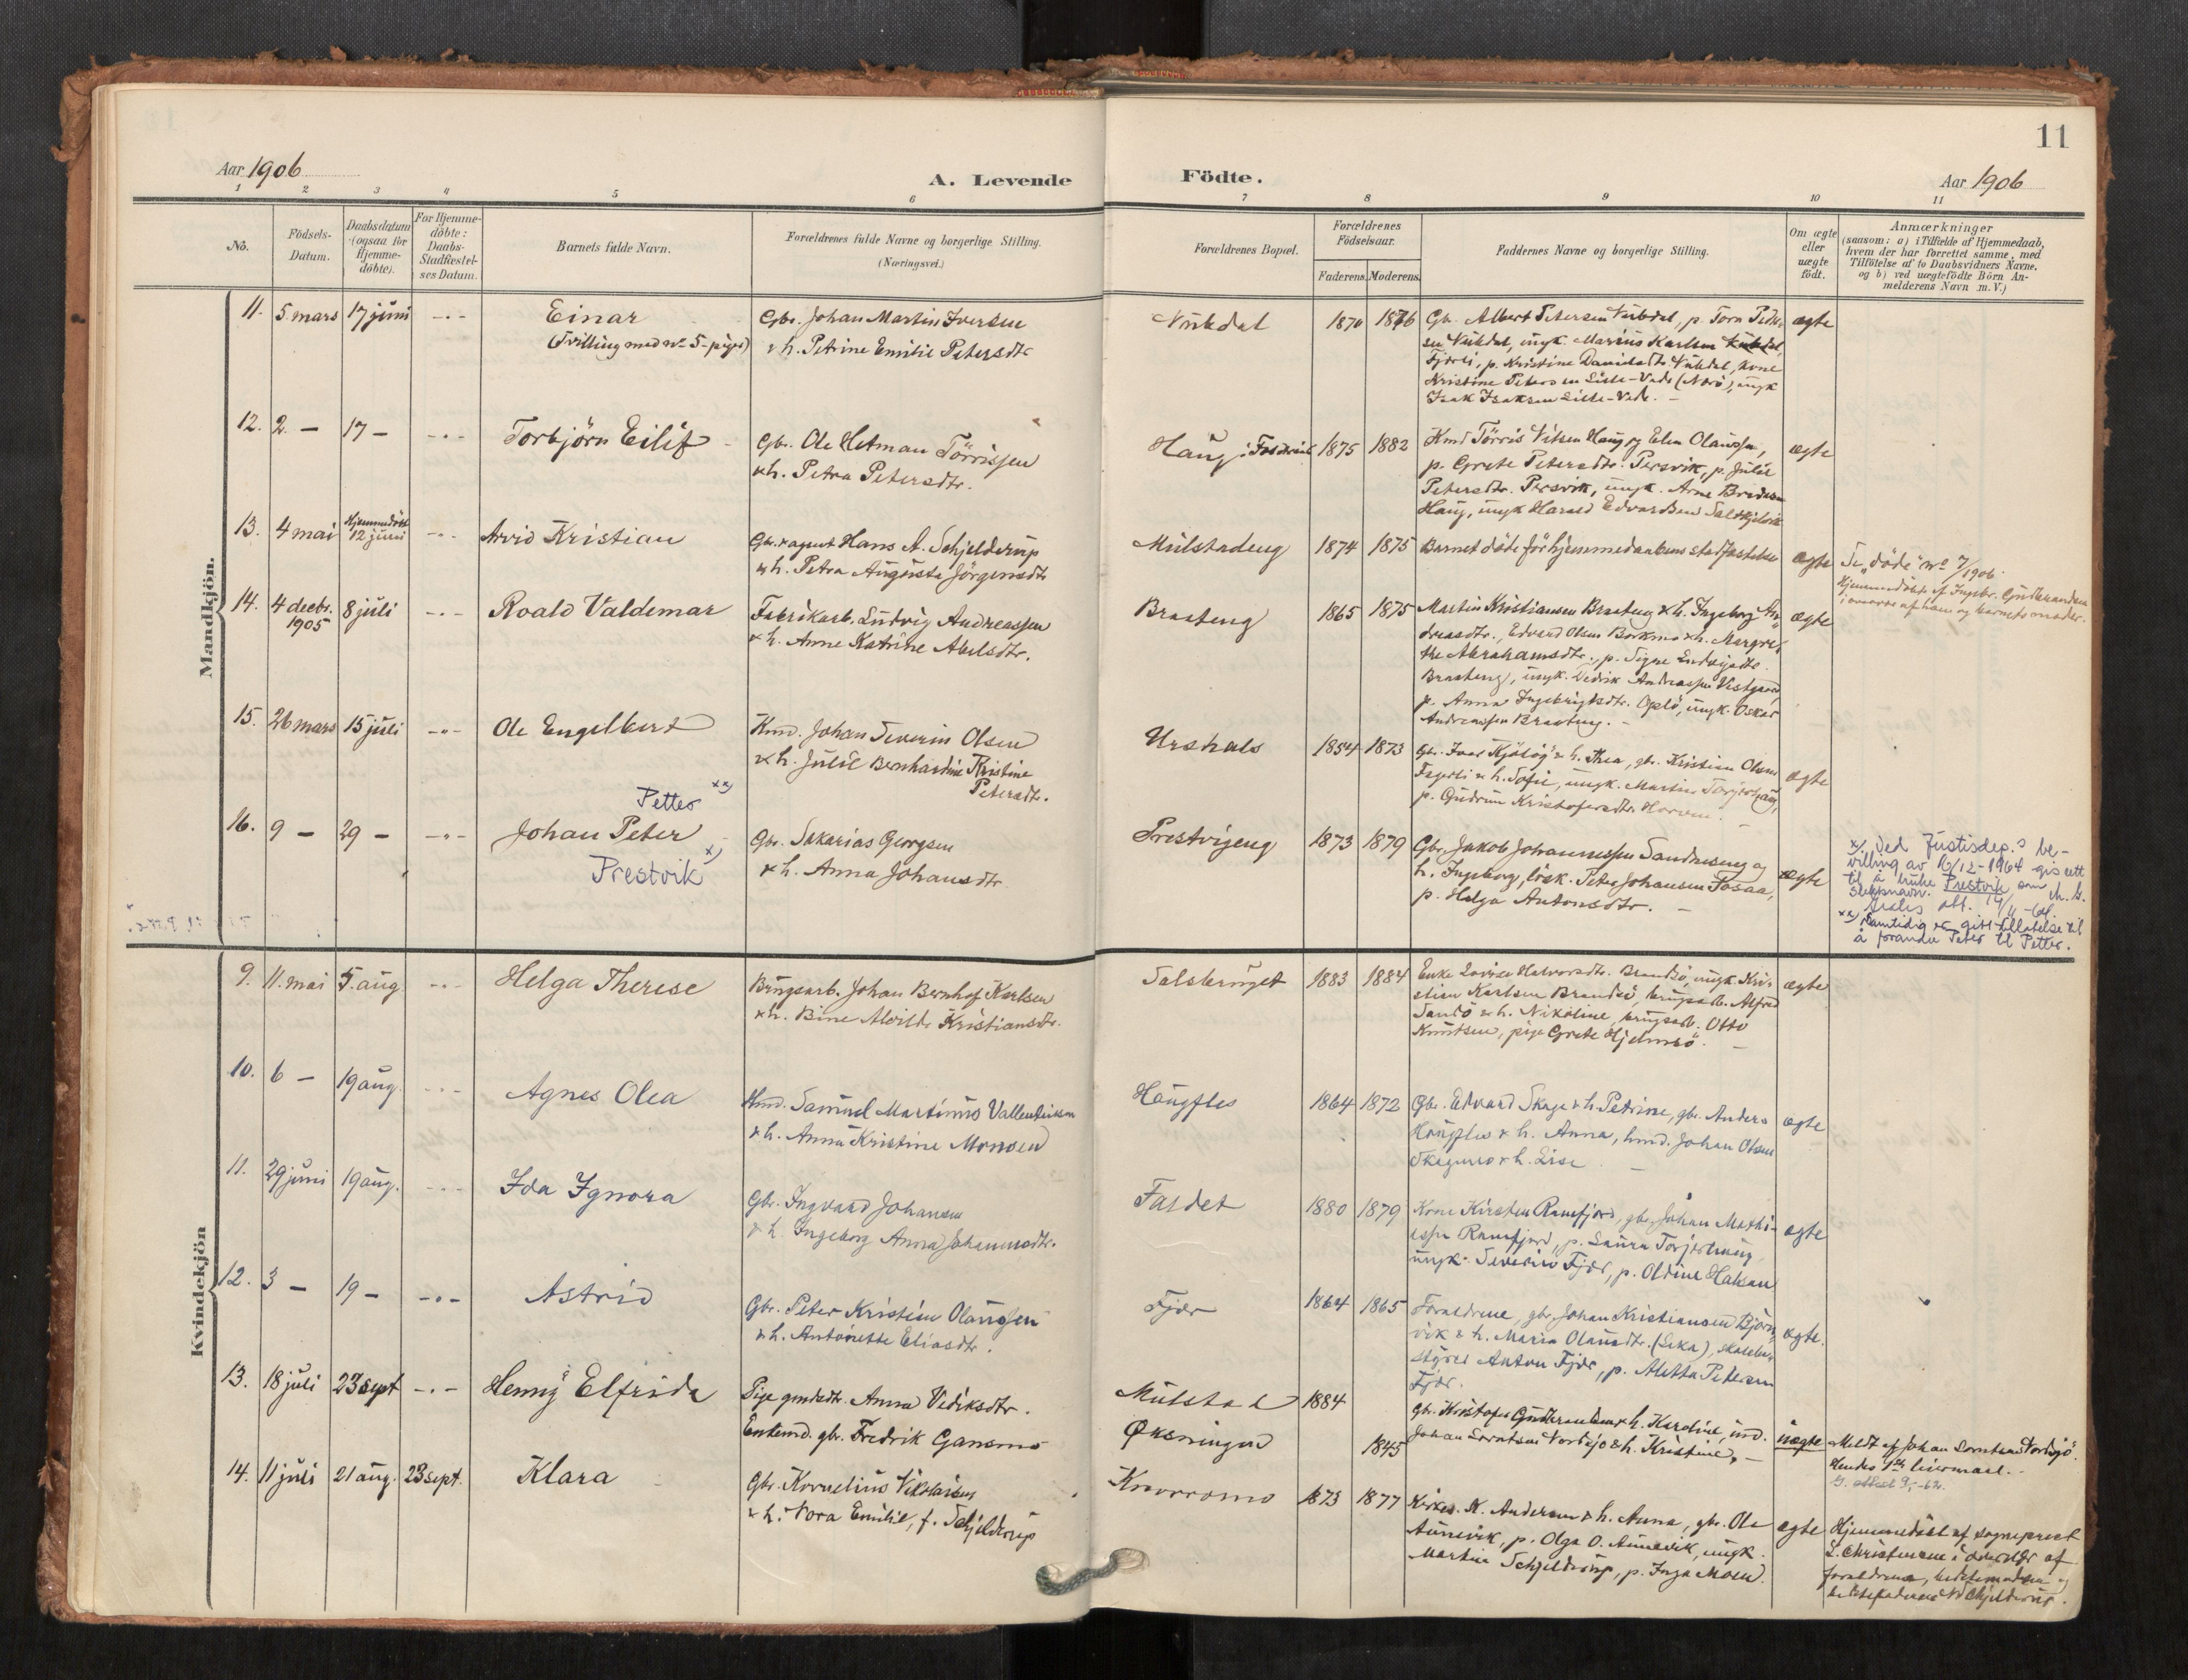 11
Aar 1906
A. Levende
Födte.
Aar 1906
1 2 3 4 5 6 7 8 9 10 11
No.
Födsels-
Datum.
Daabsdatum
(ogsaa for
Hjemme-
döbte).
For Hjemme-
döbte:
Daabs-
Stadfæstel-
ses Datum.
Barnets fulde Navn.
Forældrenes fulde Navne og borgerlige Stilling.
(Næringsvei.)
Forældrenes Bopæl.
Forældrenes
Födselsaar.
Faderens. Moderens.
Faddernes Navne og borgerlige Stilling.
Om ægte
eller
uægte
födt.
Anmærkninger
(saasom: a) i Tilfælde af Hjemmedaab,
hvem der har forrettet samme, med
Tilföielse af to Daabsvidners Navne,
og b) ved uægtefödte Börn An-
melderens Navn m. V.)
Mandkjön.
11. 5 mars 17 juni -"- Einar
(Tvilling med no 5 - piger)
Gbr. Johan Martin Iversen
& h. Petrine Emilie Petersdtr
1870 1876
Gb. Albert Petersen
Marius Karlsen
Fjærli, p. Kristine
Kristine Petersen Lille-Vede (Nærö), ungk
Isak Isaksen Lille-Vede. -
ægte
12. 2 - 17 - -"- Torbjörn Eilif
Gbr. Ole Hetman Törrissen
& h. Petra Petersdtr.
Haug i Foldereid 1875 1882
Haug og Elen Olausen,
p. Grete Petersdtr. Persvik, p. Julie
Petersdtr. Persvik, ungk. Arne
Haug, ungk Harald Edvardsen
ægte
13. 4 mai Hjemmedöbt
12 juni -"- Arvid Kristian
Gbr. & agent Hans A. Schjelderup
& h. Petra Augusta Jörgensdtr
Mulstadeng 1874 1875
Barnet döde för hjemmedaabens stadfæstelse
ægte
Se "döde" no 7/1906
Hjemmedöbt af Ingbr. Gudbrandsen
i overvær af ham og barnets moder.
14. 4 decbr.
1905
8 juli -"- Roald Valdemar
Fabrikarb. Ludvig Andreassen
& h. Anne Katrine Abelsdtr.
Brasteng 1865 1875
Martin Kristiansen Brasteng & h. Ingeborg An-
dreasdtr., Edvard Olsen Borkmo & h. Margre-
the Abrahamsdtr., p. Signe Ludvigsdtr.
Brasteng, ungk. Andreassen
p. Anna Ingebrigtsdtr. Oplö, ungk. Oskar
Andreassen Brasteng. -
ægte
15. 26 mars 15 juli -"- Ole Engelbert
Kmd. Johan Severin Olsen
& h. Julie Bernhardine Kristine
Petersdtr.
Urshals 1854 1873
Gbr. Ivar & h. Thea, gbr. Kristian Olsen
Fagerli & h. Sofie, ungk. Martin
p. Gudrun Kristofersdtr.
ægte
16. 9 - 29 - -"- Johan Peter
Petter xx)
Prestvik x)
Gbr. Sakarias Georgsen
& h. Anna Johansdtr
Prestvigeng 1873 1879
Gbr. Jakob Johannessen Sandneseng og
h. Ingeborg, lösk. Peter Johansen Fosaa,
p. Helga Antonsdtr. -
ægte
x) Ved Justisdep.s be-
villing av 16/12-1964 gis rett
til å bruke Prestvik som
slektsnavn.
xx) Samtidig er gitt tillatelse til
å forandre Peter til Petter.
Kvindekjön
9. 11. mai 5. aug -"- Helga Therese
Brugsarb. Johan Bernhof Karlsen
& h. Bine Alvilde Kristiansdtr.
Salsbruget 1883 1884
Enke Lovise Halvorsdtr. Brandsö, ungk. Kri-
stian Karlsen Brandsö, brugsarb. Alfred
Sandö & h. Nikoline, brugsarb. Otto
Knutsen, pige Grete Hjelmsö. -
ægte
10. 6 - 19 aug. -"- Agnes Olea
Kmd. Samuel Martinus Vallentinsen
& h. Anna Kristine Monsen
Haugfles 1864 1872
Gbr. Edvard Skage & h. Petrine, gbr. Anders
Haugfles & h. Anna, hmd. Johan Olsen
Skagemo & h. Lise -
ægte
11. 29 juni 19 aug. -"- Ida Ignora
Gbr. Ingvard Johansen
& h. Ingeborg Anna Johannesdtr.
Faldet 1880 1879
Kone Kirsten Ramfjord, gbr. Johan Mathi-
Ramfjord, p. Laura Torjershaug
ungk. Severin Fjær, p. Oldine
ægte
12. 3 - 19 - -"- Astrid
Gbr. Peter Kristian Olaussen
& h. Antonette Eliasdtr.
Fjær 1864 1865
Forældrene, gbr. Johan Kristiansen Björn-
vik & h. Maria Olausdtr. (Leka), skolebe-
styrer Anton Fjær, p. Aletta Petersen
Fjær.
ægte.
13. 18 juli 23 sept -"- Henny Elfrida
Pige gmdsdtr. Anna Vediksdtr.
Enkemd. gbr. Fredrik Gansmo
Mulstad 1884
Øksningen 1845
Gbr. Kristofer Gudbrandsen & h. Karoline, ind.
Johan Lorntsen Nordsjö & h. Kristine. -
uægte
Meldt af Johan Lorntsen Nordsjö.
Hendes 1ste leiermaal.
14. 11 juli 21 aug. 23 sept. Klara
Gbr. Kornelius Nikolaisen
& h. Nora Emilie, f. Schjelderup
1873 1877
Kirkes. K. Andersen & h. Anna, gbr. Ole
Aunevik, p. Olga O. Aunevik, ungk.
Martin Schjelderup, p. Inga Moen.
ægte
Hjemmedöbt af sogneprest
L. Christensen i overvær af
forældrene, bedstemoderen og
bedstefaderen Schjelderup.